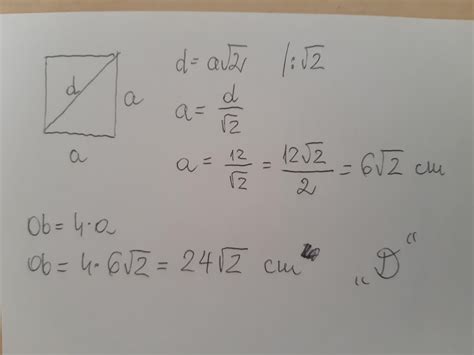 d = a√2 /:√2
d
a
a
a = d/√2
a = 12/√2 = 12√2/2 = 6√2 cm
Ob = 4·a
Ob = 4·6√2 = 24√2 cm
„D“